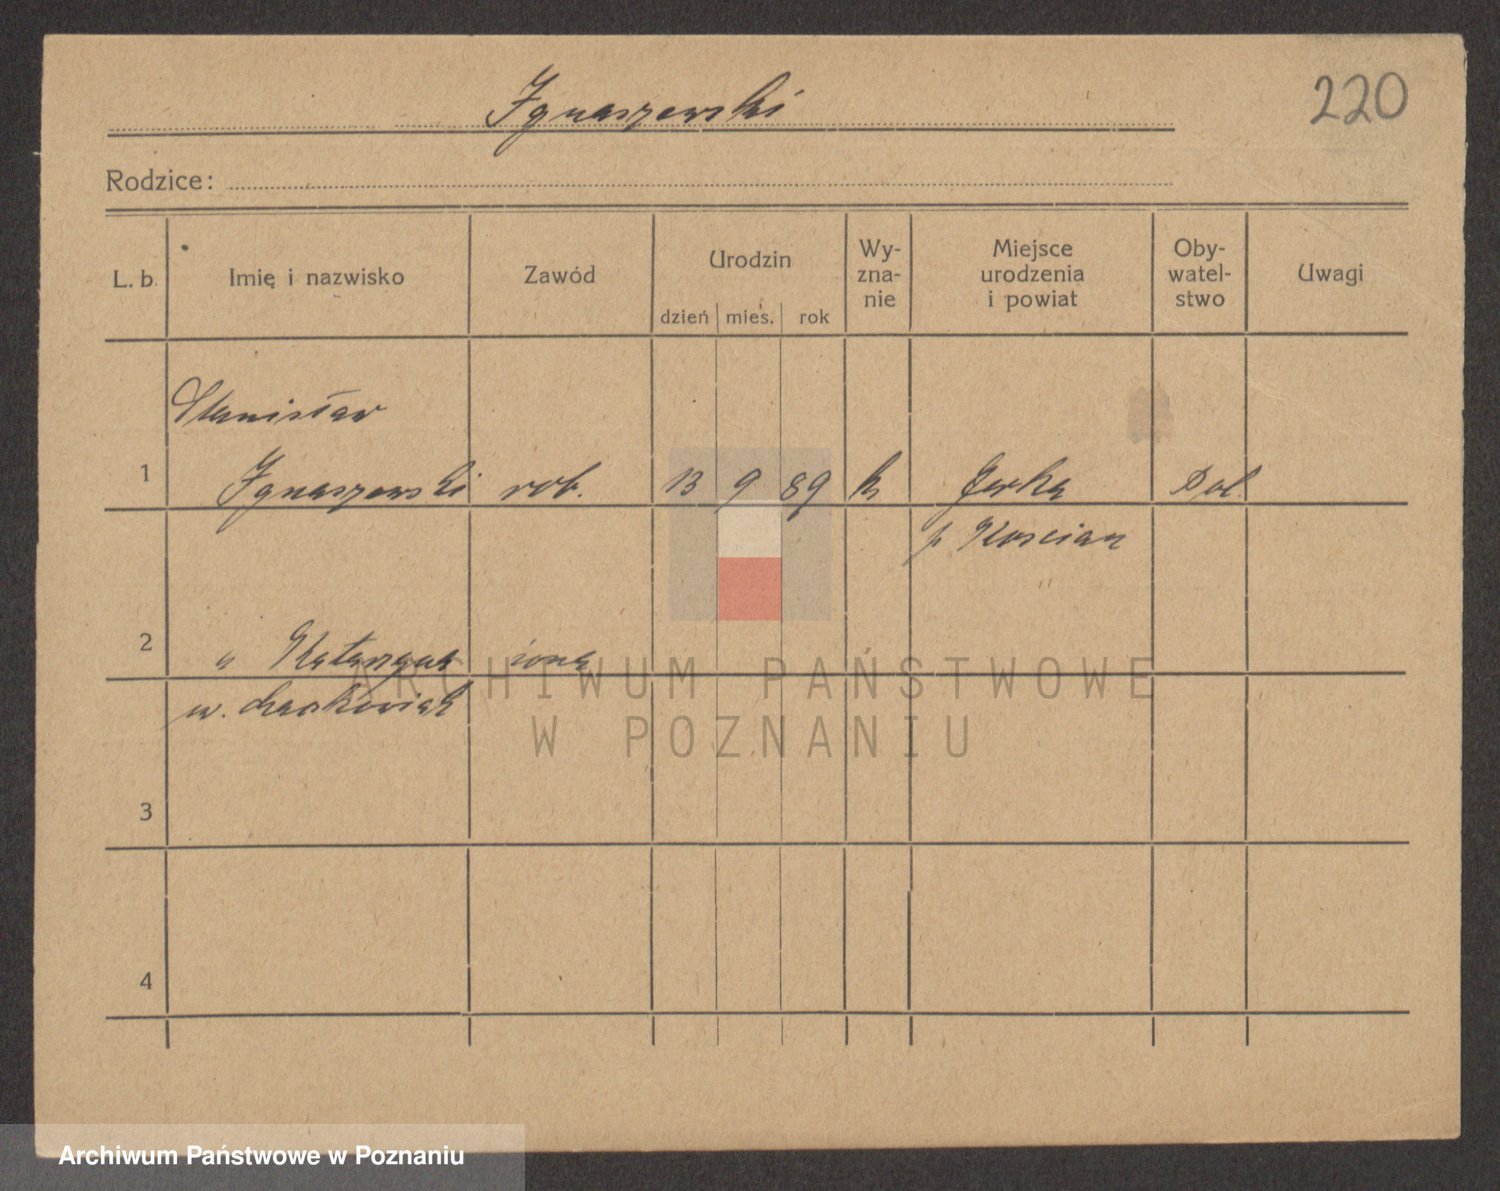 220
Ignaszewski
Rodzice:
L. b.
Imię i nazwisko
Zawód
Urodzin
dzień mies. rok
Wy-
zna-
nie
Miejsce
urodzenia
i powiat
Oby-
watel-
stwo
Uwagi
Stanisław
1 Ignaszewski rob. 13 9 89 k Jerka Pol.
p Kościan
2 " Katarzyna żona
ARCHIWUM PAŃSTWOWE
W POZNANIU
3
4
Archiwum Państwowe w Poznaniu